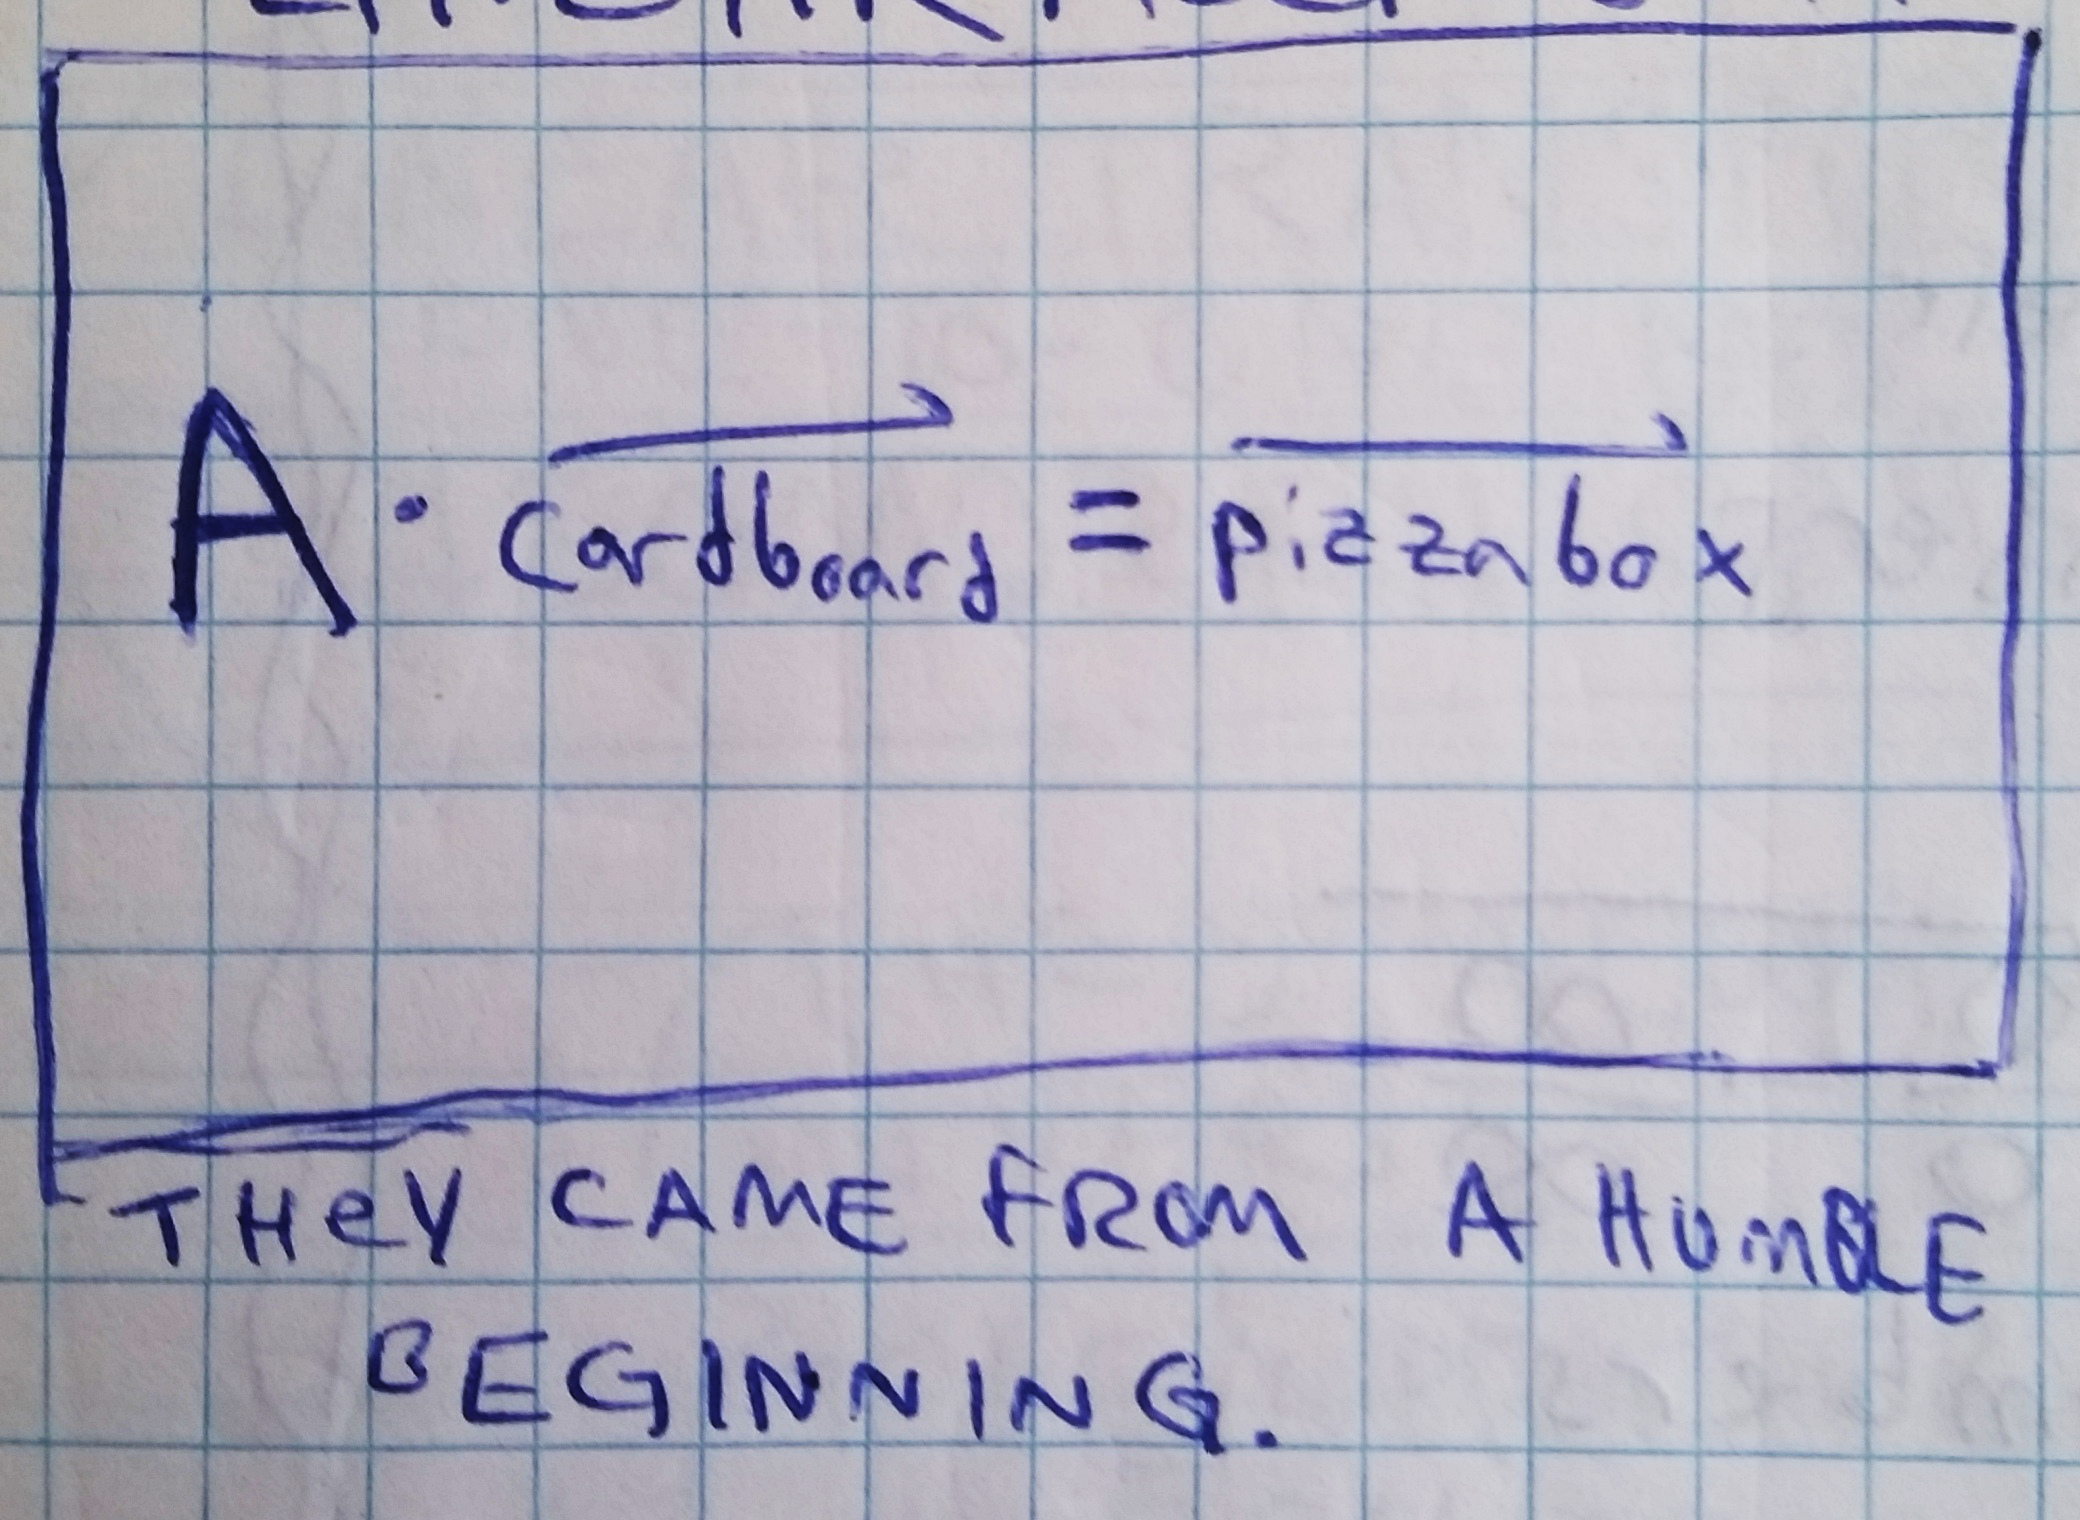 A · cardboard = pizzabox
THeY CAME FROM A HUMBLE
BEGINNING.